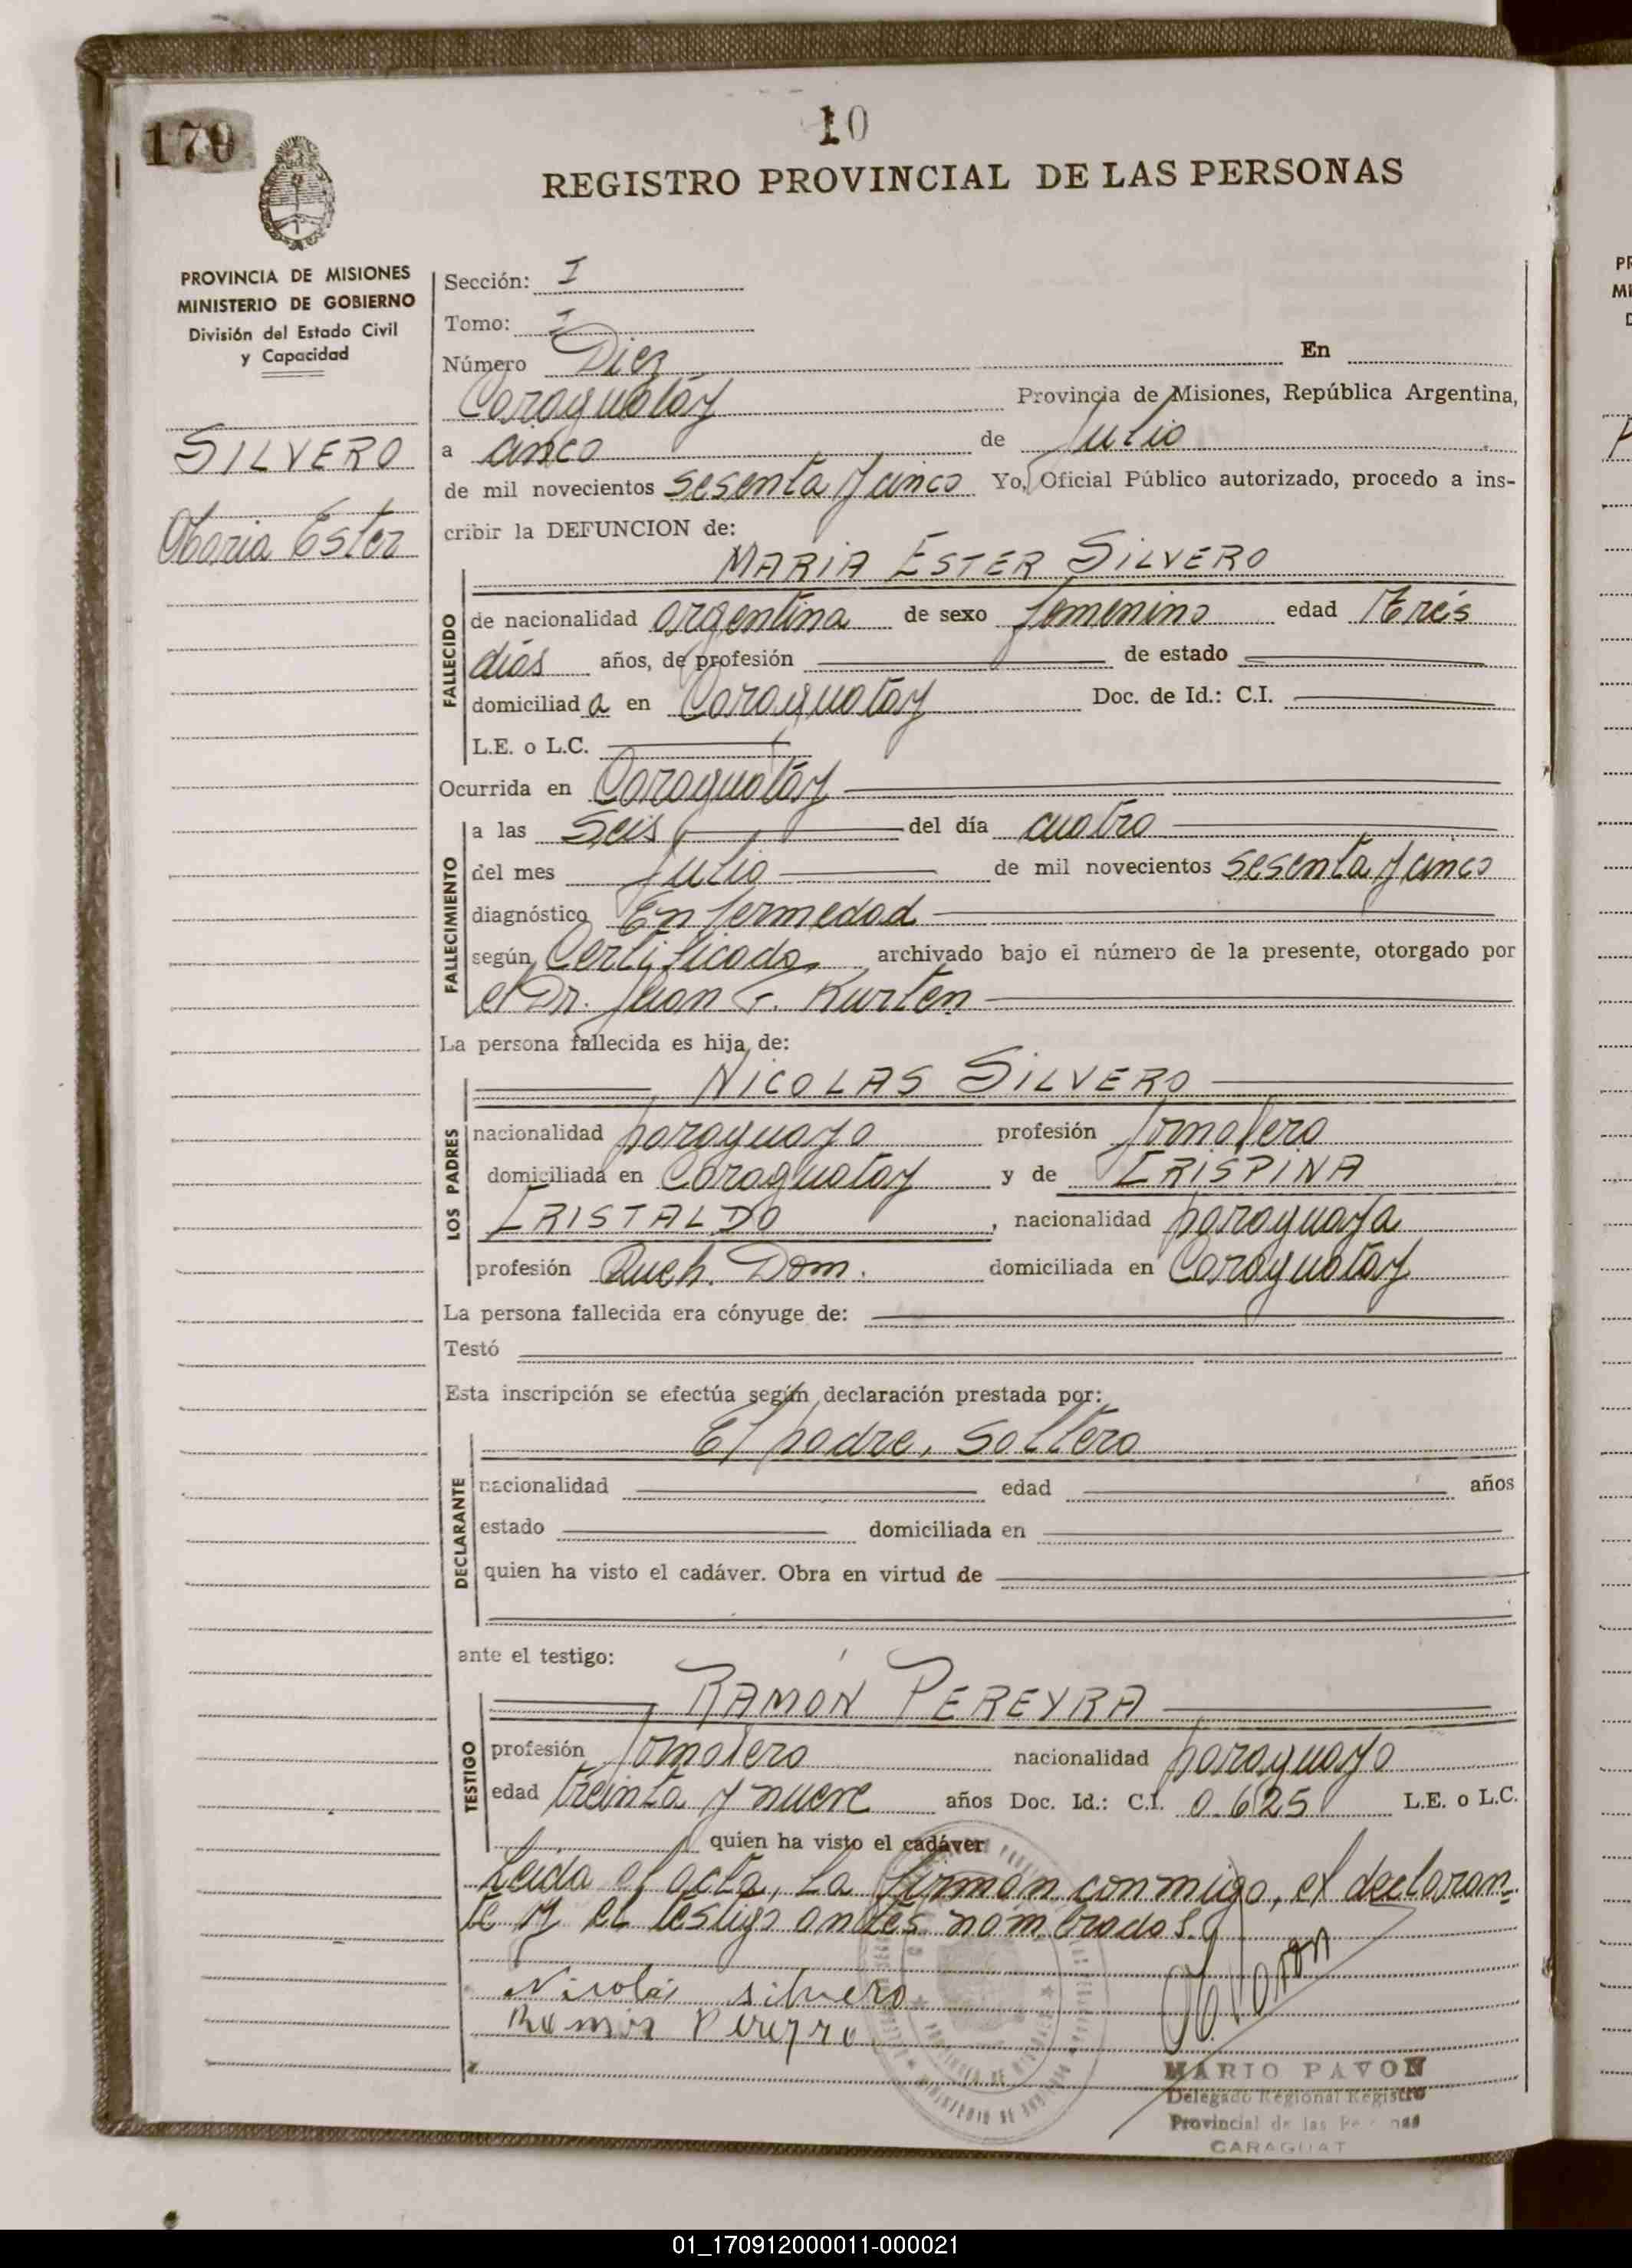 179
10
REGISTRO PROVINCIAL DE LAS PERSONAS
PROVINCIA DE MISIONES
MINISTERIO DE GOBIERNO
División del Estado Civil
y Capacidad
SILVERO
Maria Ester
Sección: I
Tomo: I
Número Diez En
Caraguatay Provincia de Misiones, República Argentina,
a cinco de Julio
de mil novecientos sesenta y cinco Yo, Oficial Público autorizado, procedo a ins-
cribir la DEFUNCION de:
MARIA ESTER SILVERO
FALLECIDO
de nacionalidad argentina de sexo femenino edad Tres
días años, de profesión de estado
domiciliad a en Caraguatay Doc. de Id.: C.I.
L.E. o L.C.
Ocurrida en Caraguatay
FALLECIMIENTO
a las Seis del día cuatro
del mes Julio de mil novecientos sesenta y cinco
diagnóstico Enfermedad
según Certificado archivado bajo el número de la presente, otorgado por
el Dr. Juan F. Kurten
La persona fallecida es hija de:
LOS PADRES
NICOLAS SILVERO
nacionalidad paraguayo profesión Jornalero
domiciliada en Caraguatay y de CRISPINA
CRISTALDO, nacionalidad paraguaya
profesión Queh. Dom. domiciliada en Caraguatay
La persona fallecida era cónyuge de:
Testó
Esta inscripción se efectúa según declaración prestada por:
DECLARANTE
El padre, soltero
nacionalidad edad años
estado domiciliada en
quien ha visto el cadáver. Obra en virtud de
ante el testigo:
TESTIGO
RAMÓN PEREYRA
profesión Jornalero nacionalidad paraguayo
edad treinta y nueve años Doc. Id.: C.I. 0.625 L.E. o L.C.
quien ha visto el cadáver
Leída el acta, la firman conmigo, el declaran=
te y el testigo antes nombrados.
Nicolás silvero
Ramon Pereyra
MPavon
MARIO PAVON
Delegado Regional Registro
Provincial de las Pe nas
CARAGUAT
01_170912000011-000021